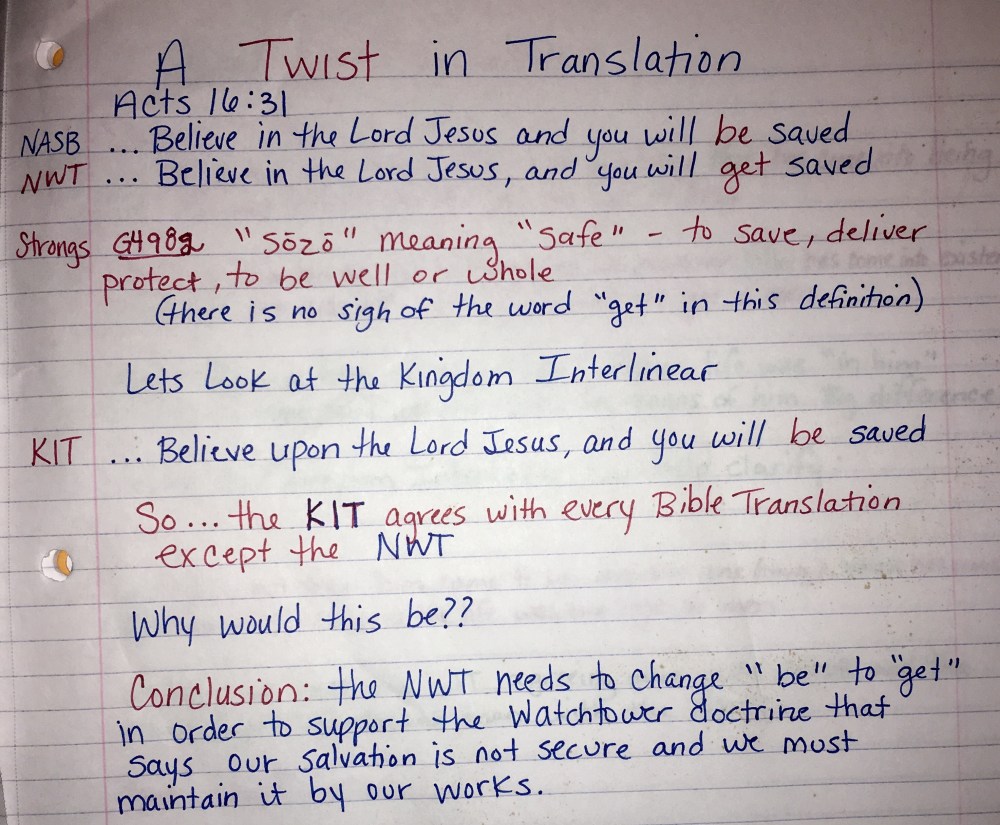 A Twist in Translation
Acts 16:31
NASB ... Believe in the Lord Jesus and you will be saved
NWT ... Believe in the Lord Jesus, and you will get saved
Strongs G4982 "Sōzō" meaning "Safe" - to save, deliver
protect, to be well or whole
(there is no sigh of the word "get" in this definition)
Lets Look at the Kingdom Interlinear
KIT ... Believe upon the Lord Jesus, and you will be saved
So... the KIT agrees with every Bible Translation
except the NWT
Why would this be??
Conclusion: the NWT needs to change "be" to "get"
in order to support the Watchtower doctrine that
says our salvation is not secure and we must
maintain it by our works.